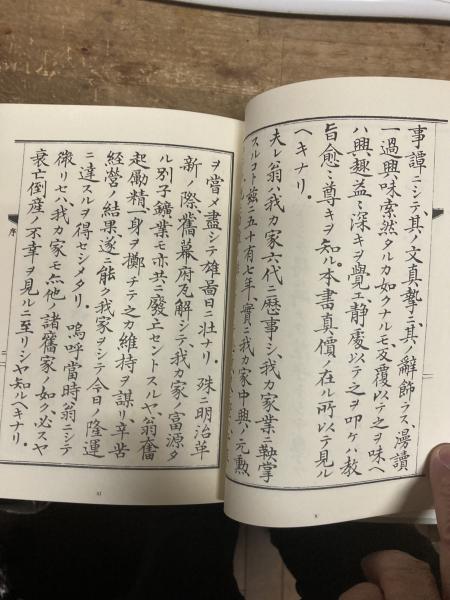 事譚ニシテ、其ノ文真摯ニ、其ノ辭飾ラス、漫讀
一過興味索然タルカ如クナルモ、反覆以テ之ヲ味ヘ
ハ興趣益〻深キヲ覺エ、静慮以テ之ヲ叩ケハ教
旨愈〻尊キヲ知ル。本書真價ノ在ル所以テ見ル
ヘキナリ。
夫レ翁ハ我カ家六代ニ歴事シ、我カ家業ニ鞅掌
スルコト玆ニ五十有七年、實ニ我カ家中興ノ元勲
ヲ嘗メ盡シテ雄畐日ニ壮ナリ。殊ニ明治革
新ノ際舊幕府瓦解シテ、我カ家ノ富源タ
ル別子鑛業モ亦共ニ廢立セントスルヤ、翁奮
起勵精一身ヲ擲チテ之カ維持ヲ謀リ、辛苦
經營ノ結果、遂ニ能ク我家ヲシテ今日ノ隆運
ニ達スルヲ得セシメタリ。嗚呼當時翁ニシテ
微リセハ我カ家モ亦他ノ諸舊家ノ如ク、必スヤ
衰亡倒産ノ不幸ヲ見ルニ至リシヤ知ルヘキナリ。
序